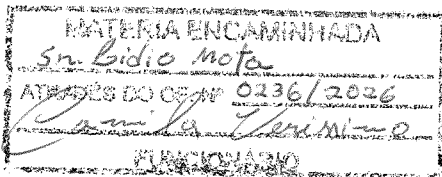 MATERIA ENCAMINHADA
Sr. Lidio Mota
ATRAVÉS DO OF. Nº 0236/2026
Camila Verimimo
FUNCIONÁRIO